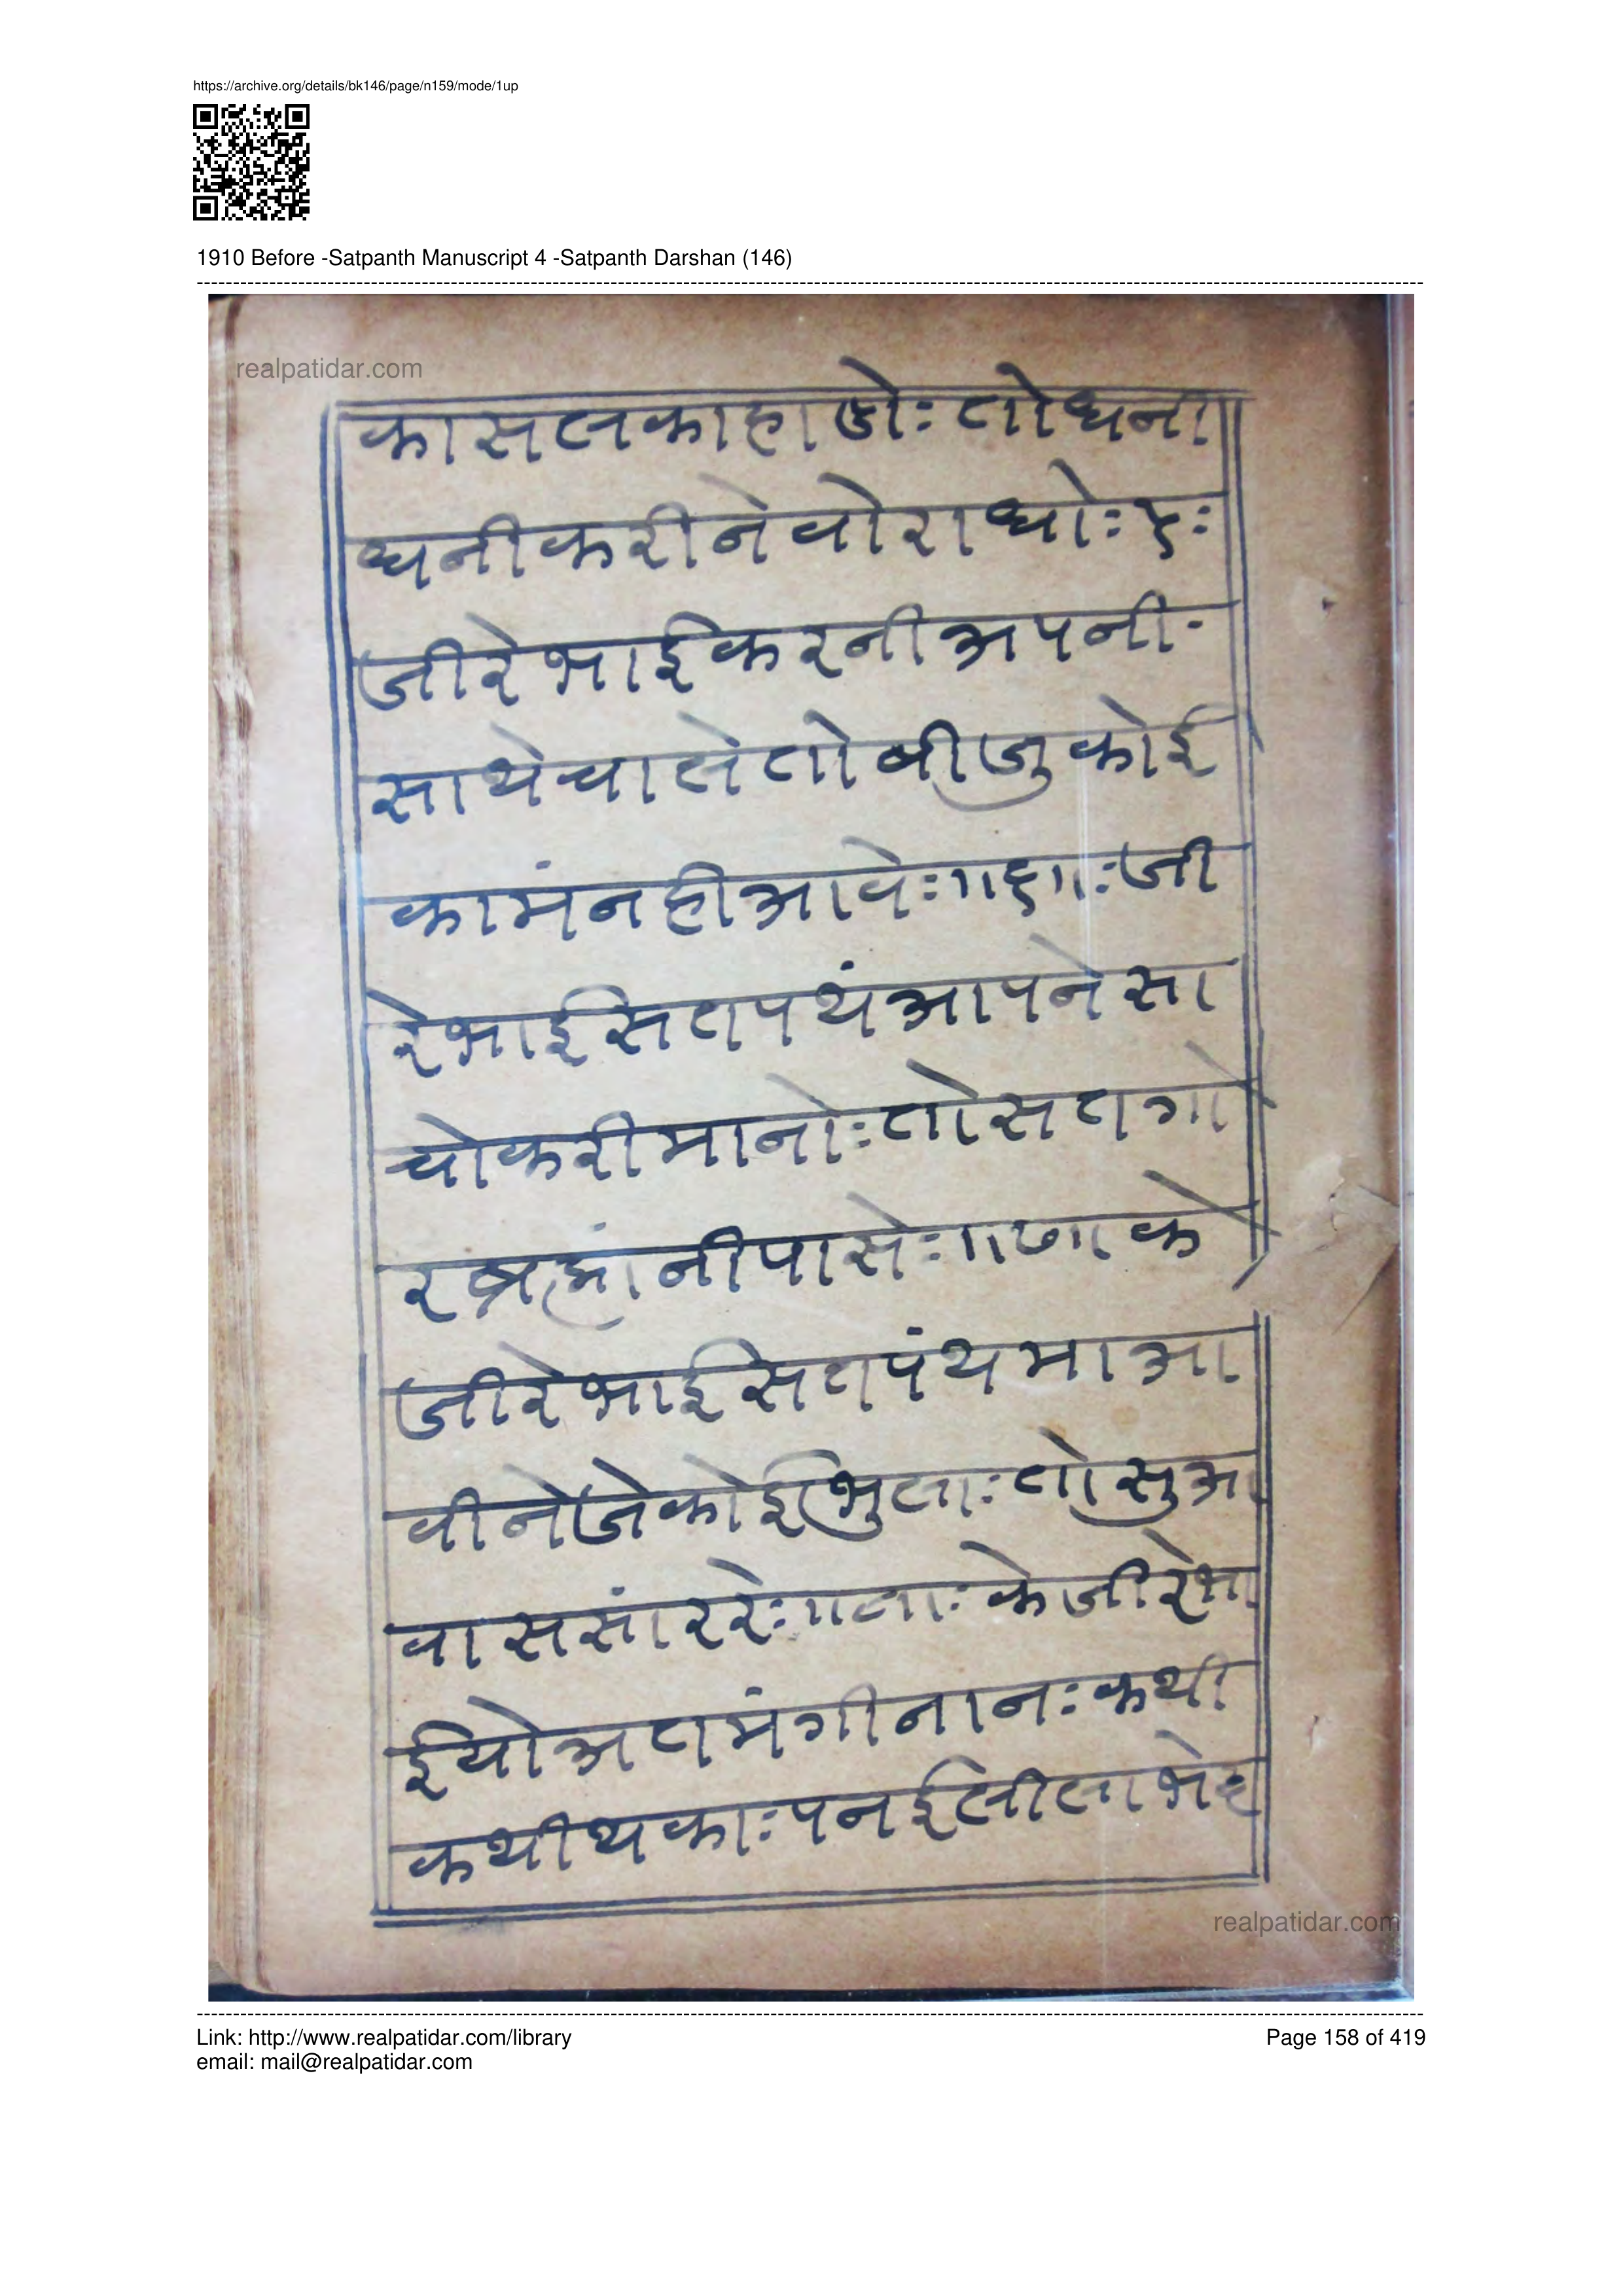 https://archive.org/details/bk146/page/n159/mode/1up
1910 Before -Satpanth Manuscript 4 -Satpanth Darshan (146)
realpatidar.com
कासलकाहाडोः तोधनी
धनीकरीनेवोराधोः ५ः
जीरेभाईकरनीअपनी-
साथेचालेतोबीजुकोई
कामंनहीआवेः॥६॥ःजी
रेभाईसतपथंआपनेसा
चोकरीमानोःतोसतगो
रब्रह्मांनीपासेः॥७॥के
जीरेभाईसतपंथमाआ
वीनेजेकोईभुलाःतोसुआ
वाससांररेः॥८॥ःकेजीरेभा
ईयोअतमंगीनानःकथी
कथीथकाःपनईलीला
realpatidar.com
Link: http://www.realpatidar.com/library
Page 158 of 419
email: mail@realpatidar.com